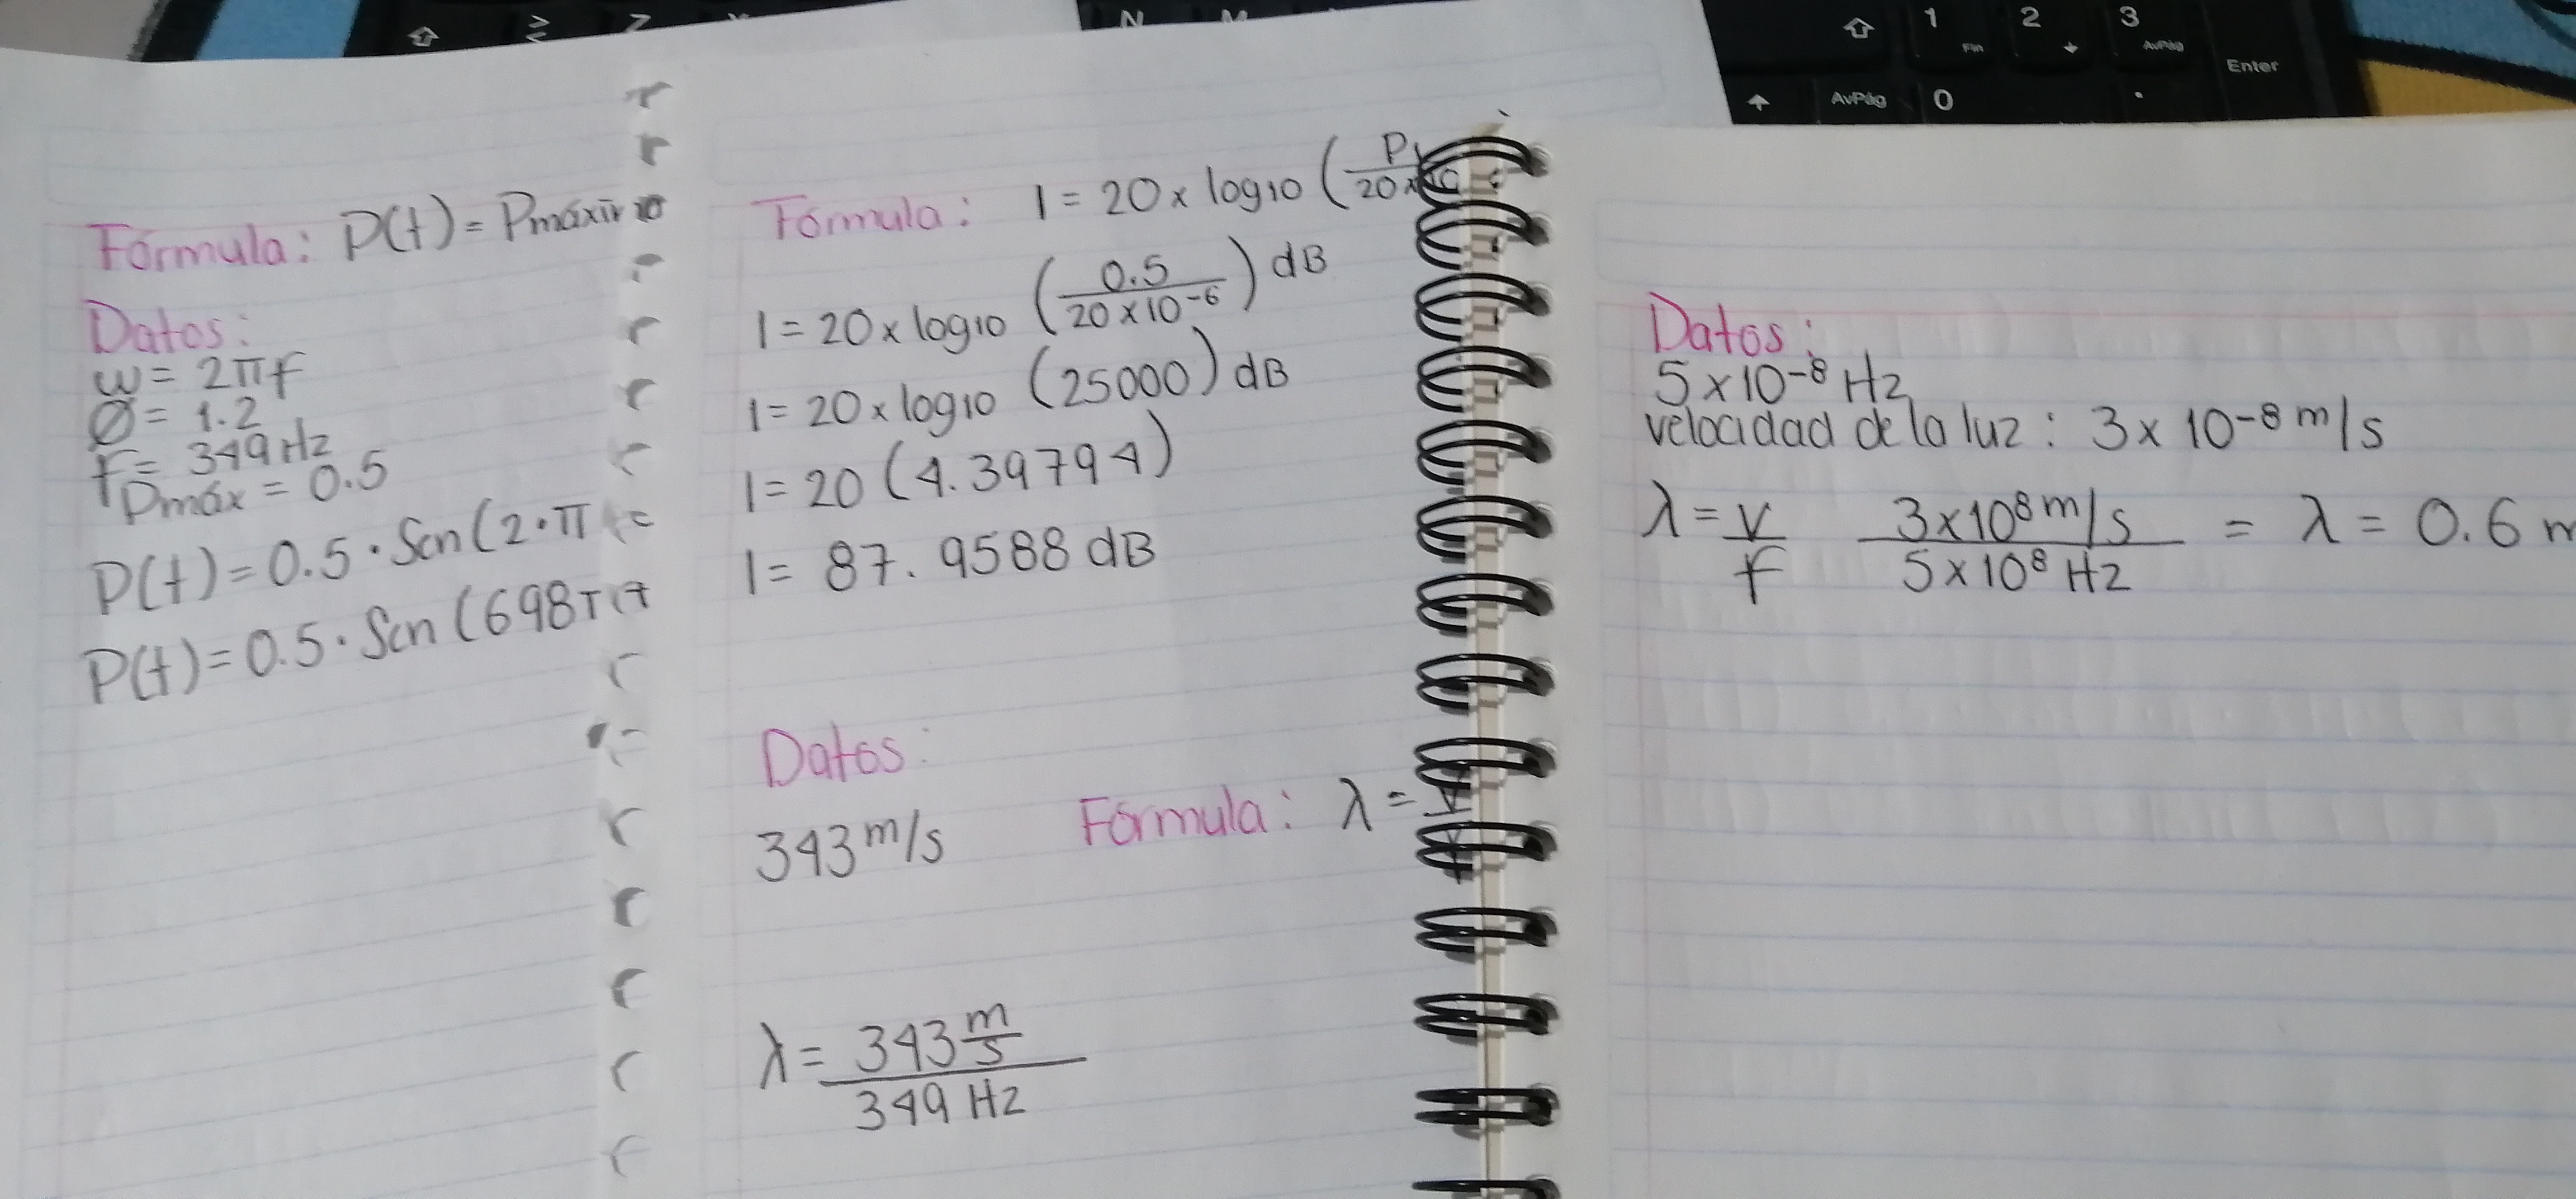 N M
1 2 3
Fin AvPág
Enter
AvPág 0 .
Fórmula: P(t) = Pmáxi
Datos:
w = 2πf
Ø = 1.2
f = 349 Hz
Pmáx = 0.5
P(t) = 0.5 · Sen (2 · π
P(t) = 0.5 · Sen (698π
Fórmula: I = 20 x log10 (P/20 x
I = 20 x log10 (0.5/20 x 10⁻⁶) dB
I = 20 x log10 (25000) dB
I = 20 (4.39794)
I = 87.9588 dB
Datos:
343 m/s Fórmula: λ = v/f
λ = 343 m/s / 349 Hz
Datos:
5 x 10⁻⁸ Hz
velocidad de la luz: 3 x 10⁻⁸ m/s
λ = v/f 3 x 10⁸ m/s / 5 x 10⁸ Hz = λ = 0.6 m